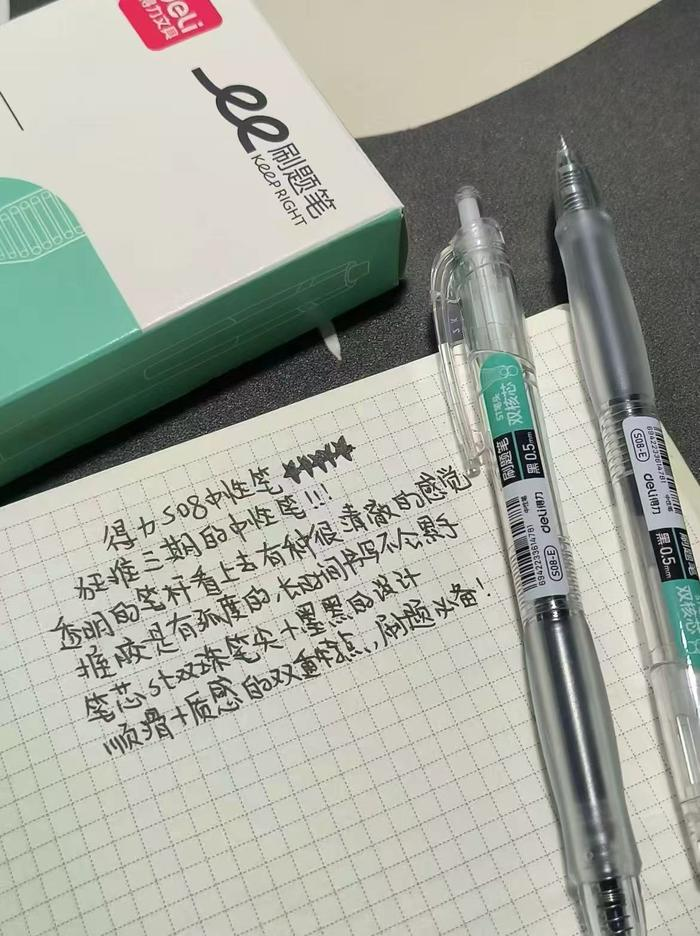 deli
得力文具
刷题笔
KeePRIGHT
得力S08中性笔
狂推三期的中性笔!!!
透明的笔杆看上去有种很清敞的感觉
握胶是有弧度的.长时间书写不会累手
笔芯ST双珠笔尖+墨黑的设计
顺滑+质感的双重特点,刷题必备!
ST笔头
双核芯
刷题笔
黑 0.5mm
中性笔
deli得力
6942233614781
S08-E
S08-E
6942233614781
deli得力
刷题笔
黑 0.5mm
双核芯